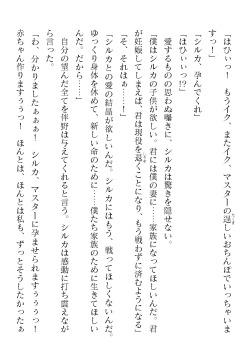 「はひぃっ！　もうイク、またイク、マスターの逞しいおちんぽでいっちゃいま
すっ！」
「シルカ、孕んでくれ」
「はひぃっ!?」
　愛するものの思わぬ囁きに、シルカは驚きを隠せない。
「僕はシルカの子供が欲しい。君には僕の妻に……家族になってほしいんだ。君
が妊娠してしまえば、君は現役を退くことになり、もう戦わずに済むようになる」
「そ、それはぁ……」
「シルカとの愛の結晶が欲しいんだ。シルカにはもう、戦ってほしくないんだ。
ゆっくり身体を休めて、新しい命のために……僕たち家族のために生きてほしい
んだ。だから……」
　自分の望んだ全てを伴野は与えてくれると言う。シルカは感動に打ち震えなが
ら言った。
「わ、分かりましたぁぁぁ！　シルカ、マスターに孕ませられますぅぅぅっ！
赤ちゃん作りますぅぅぅっ！　ほんとは、ほんとは私も、ずっとそうしたかったぁ